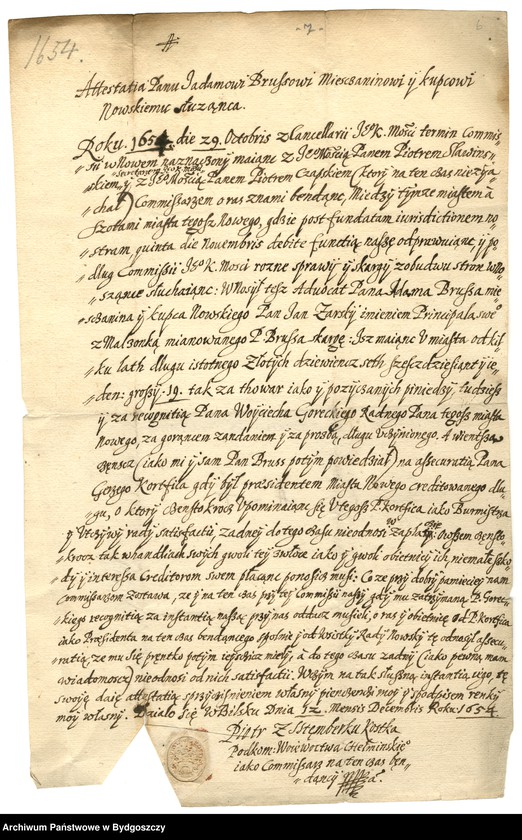 1654.
Attestatia Panu Jadamowi Brussowi Miesczaninowi y kupcowi
Nowskiemu słuzanca.
Roku 1654 die 29. Octobris z Cancellarii J° K. Mości termin Commis
sii w Nowem naznaczony maiąc z Je° Mością Panem Piotrem Sławins
kiem y z Je° Mością Panem Piotrem Czapskiem (ktory na ten czas niezyia
chał) Commissarzem oraz znami bendąc, Miedzy tymze miastem a
Szotami miasta tegosz Nowego, gdzie post fundatam iurisdictionem no
stram, quinta die Novembris debite functią naszę odprawuiąc y po
dług Commissii J° K. Mosci rozne sprawy y skargy z obudwu stron wno
sząące słuchaiąc: Wnosył tesz Advocat Pana Adama Brussa mie
sczanina y kupca Nowskiego Pan Jan Zarsky imieniem Principała swe°
z Małzonką mianowanego P. Brussa skargę: Isz maiąc U miasta od kil
ku lath długu istotnego Złotych dziewiencz seth szesczdziesiąnt y ie
den: groszy 19. tak za thowar iako y pozyczanych piniedzy tudziesz
y za recognitią Pana Woyciecha Goreckiego Radnego Pana tegosz miasta
Nowego, za gorąncem ządaniem y za prozbą, długu uczynionego. A wientsza
czenscz (iako mi y sam Pan Bruss potym powiedział) na assecuratią Pana
Gerzego Kortfica gdy był praesidentem Miasta Nowego creditowanego dłu
gu, o ktory czensto krocz upominaiąc się U tegosz P. Kortfica iako Burmistrza
y Uczciwy rady satisfactii, zadney do tego czasu nieodnosi zapłaty: Owszem czensto
krocz tak w handlach swych gwoli tey zwłoce iako y gwoli obietnicy ich niemałe szko
dy y interessa Creditorom swem płacąnc ponosicz musi: Co ze przy dobry pamieciey nam
Commissarzom zostawa, ze y na ten czas przy tey Commissii naszy gdy mu zatrzymaną P. Gorec
kiego recognitią za instantią naszą przy nas oddacz musieli, o ras y obietnicę od P. Kortfica
iako Praesidenta na ten czas bendącego społnie y od wszitky Rady Nowsky te odnosił assecu
ratią ze mu się prentko potym ieyscicz mieły, a do tego czasu zadny (iako pewną mam
wiadomoscz) nieodnosi od nich satisfactii. W czym na tak słuszną instantią iego tę
swoię daię attestatią s przyciśnieniem własny pieczenci moy y s podpisem renky
moy własny. Działo się w Bilsku Dnia 12. Mensis Decembris Roku 1654
Piotr Z Sztemberku Kostka
Podkom: Woiewoctwa Chełminskie°
iako Commissarz na ten czas ben
dancy
Archiwum Państwowe w Bydgoszczy